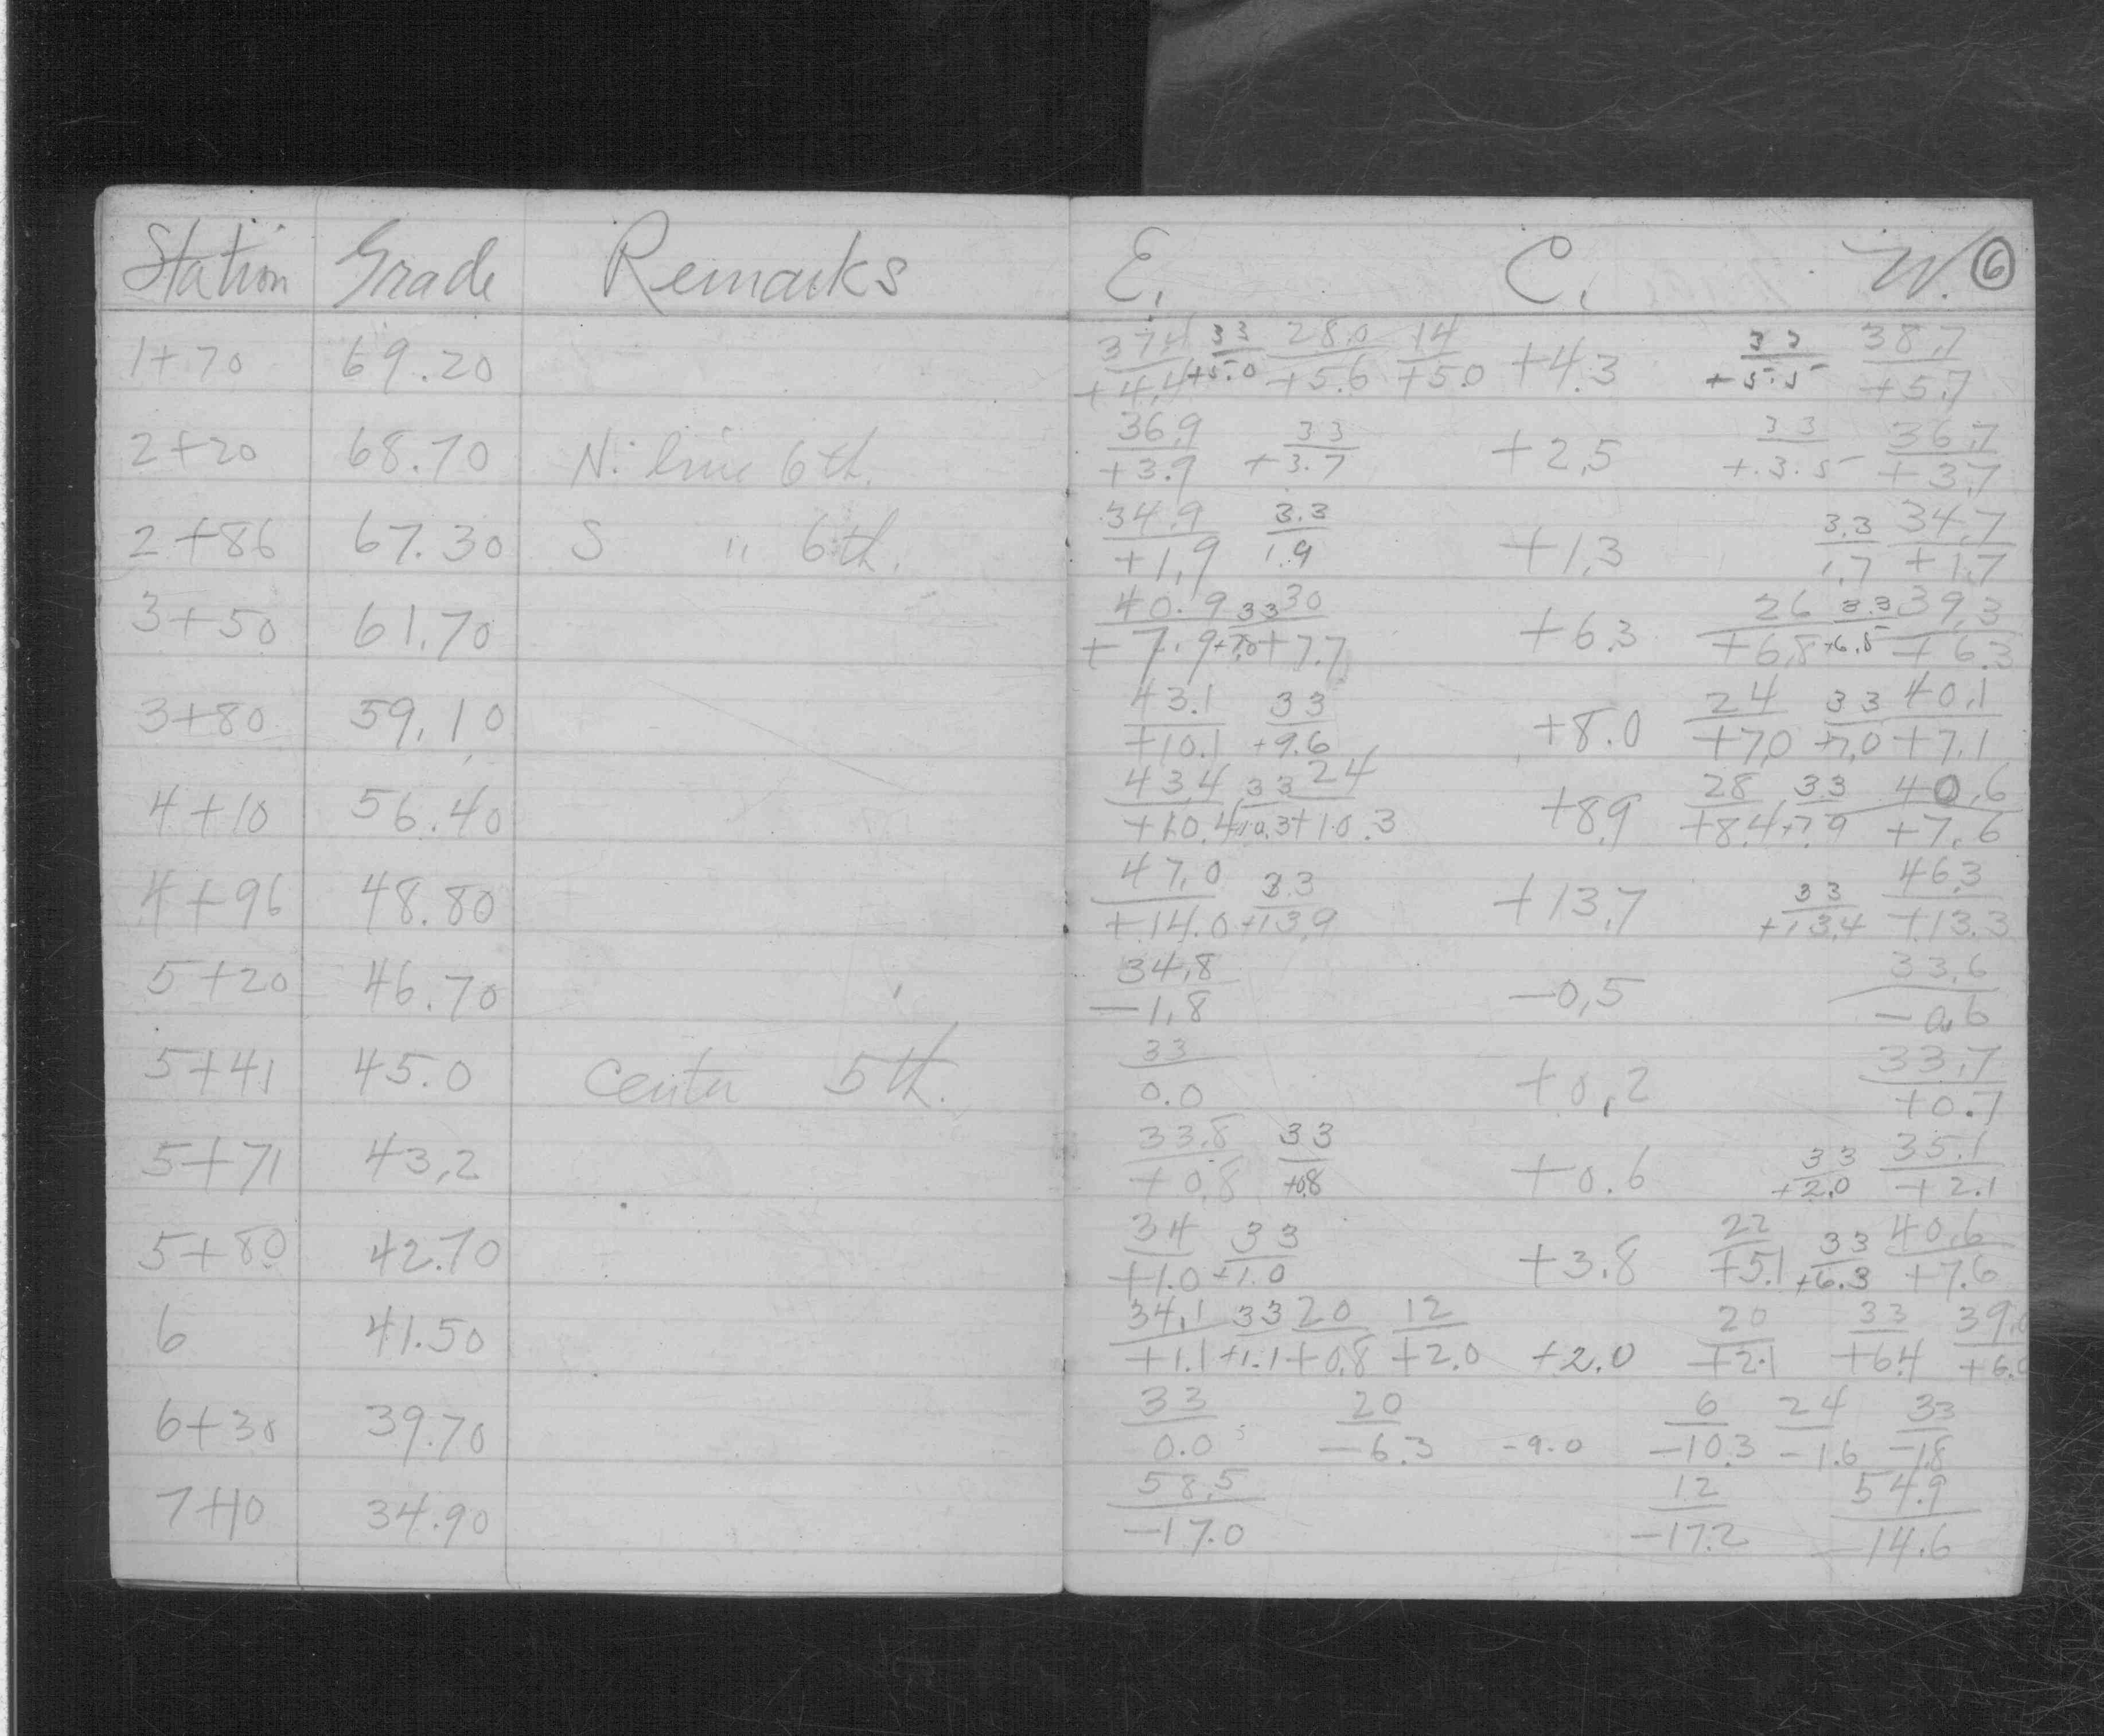 Station Grade Remarks E. C. W. 6
37.4 33 28.0 14 33 38.7
1+70 69.20 +4.4 +5.0 +5.6 +5.0 +4.3 +5.5 +5.7
36.9 33 33 36.7
2+20 68.70 N. line 6th. +3.9 +3.7 +2.5 +3.5 +3.7
34.9 3.3 3.3 34.7
2+86 67.30 S " 6th. +1.9 1.9 +1.3 1.7 +1.7
40.9 33 30 26 3.3 39.3
3+50 61.70 +7.9 +7.0 +7.7 +6.3 +6.8 +6.5 +6.3
43.1 33 24 33 40.1
3+80 59.10 +10.1 +9.6 +8.0 +7.0 +7.0 +7.1
43.4 33 24 28 33 40.6
4+10 56.40 +10.4 +10.3 +10.3 +8.9 +8.4 +7.9 +7.6
47.0 33 33 46.3
4+96 48.80 +14.0 +13.9 +13.7 +13.4 +13.3
34.8 33.6
5+20 46.70 -1.8 -0.5 -0.6
33 33.7
5+41 45.0 Center 5th. 0.0 +0.2 +0.7
33.8 33 33 35.1
5+71 43.2 +0.8 +0.8 +0.6 +2.0 +2.1
34 33 22 33 40.6
5+80 42.70 +1.0 +1.0 +3.8 +5.1 +6.3 +7.6
34.1 33 20 12 20 33 39.0
6 41.50 +1.1 +1.1 +0.8 +2.0 +2.0 +2.1 +6.4 +6.0
33 20 6 24 33
6+30 39.70 0.0 -6.3 -9.0 -10.3 -1.6 -1.8
58.5 12 54.9
7+10 34.90 -17.0 -17.2 -14.6